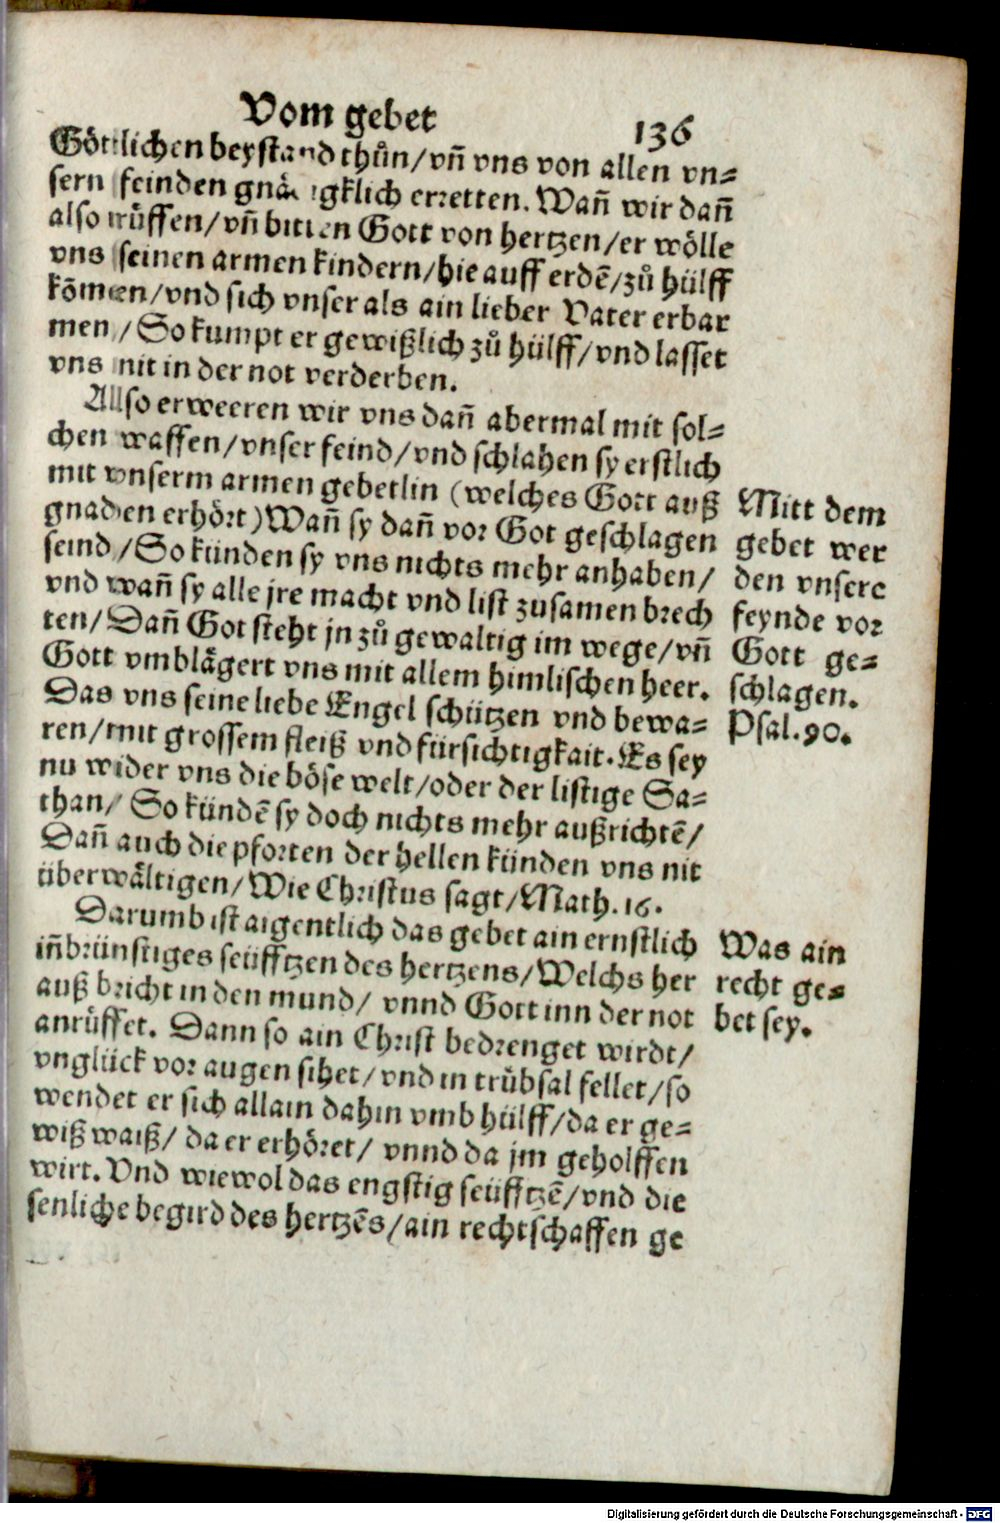 Vom gebet 136
Göttlichen beystand thůn/vñ vns von allen vn⸗
sern feinden gnä gklich erretten. Wañ wir dañ
also rüffen/vñ bitten Gott von hertzen/er wölle
vns seinen armen kindern/hie auff erdẽ/zů hülff
kõmen/vnd sich vnser als ain lieber Vater erbar
men/So kumpt er gewißlich zů hülff/vnd lasset
vns nit in der not verderben.
Also erweeren wir vns dañ abermal mit sol⸗
chen waffen/vnser feind/vnd schlahen sy erstlich
mit vnserm armen gebetlin (welches Gott auß
gnaden erhört) Wañ sy dañ vor Got geschlagen
seind/So künden sy vns nichts mehr anhaben/
vnd wañ sy alle jre macht vnd list zusamen brech
ten/Dañ Got steht jn zů gewaltig im wege/vñ
Gott vmblägert vns mit allem himlischen heer.
Das vns seine liebe Engel schützen vnd bewa⸗
ren/mit grossem fleiß vnd fürsichtigkait. Es sey
nu wider vns die böse welt/oder der listige Sa⸗
than/ So kündẽ sy doch nichts mehr außrichtẽ/
Dañ auch die pforten der hellen künden vns nit
überwältigen/Wie Christus sagt/Math.16.
Mitt dem
gebet wer
den vnsere
feynde vor
Gott ge⸗
schlagen.
Psal.90.
Darumb ist aigentlich das gebet ain ernstlich
iñbrünstiges seüfftzen des hertzens/Welchs her
auß bricht in den mund/ vnnd Gott inn der not
anrüffet. Dann so ain Christ bedrenget wirdt/
vnglück vor augen sihet/vnd in trübsal fellet/so
wendet er sich allain dahin vmb hülff/da er ge⸗
wiß waiß/ da er erhöret/ vnnd da jm geholffen
wirt. Vnd wiewol das engstig seüfftzẽ/vnd die
senliche begird des hertzẽs/ain rechtschaffen ge
Was ain
recht ge⸗
bet sey.
Digitalisierung gefördert durch die Deutsche Forschungsgemeinschaft - DFG